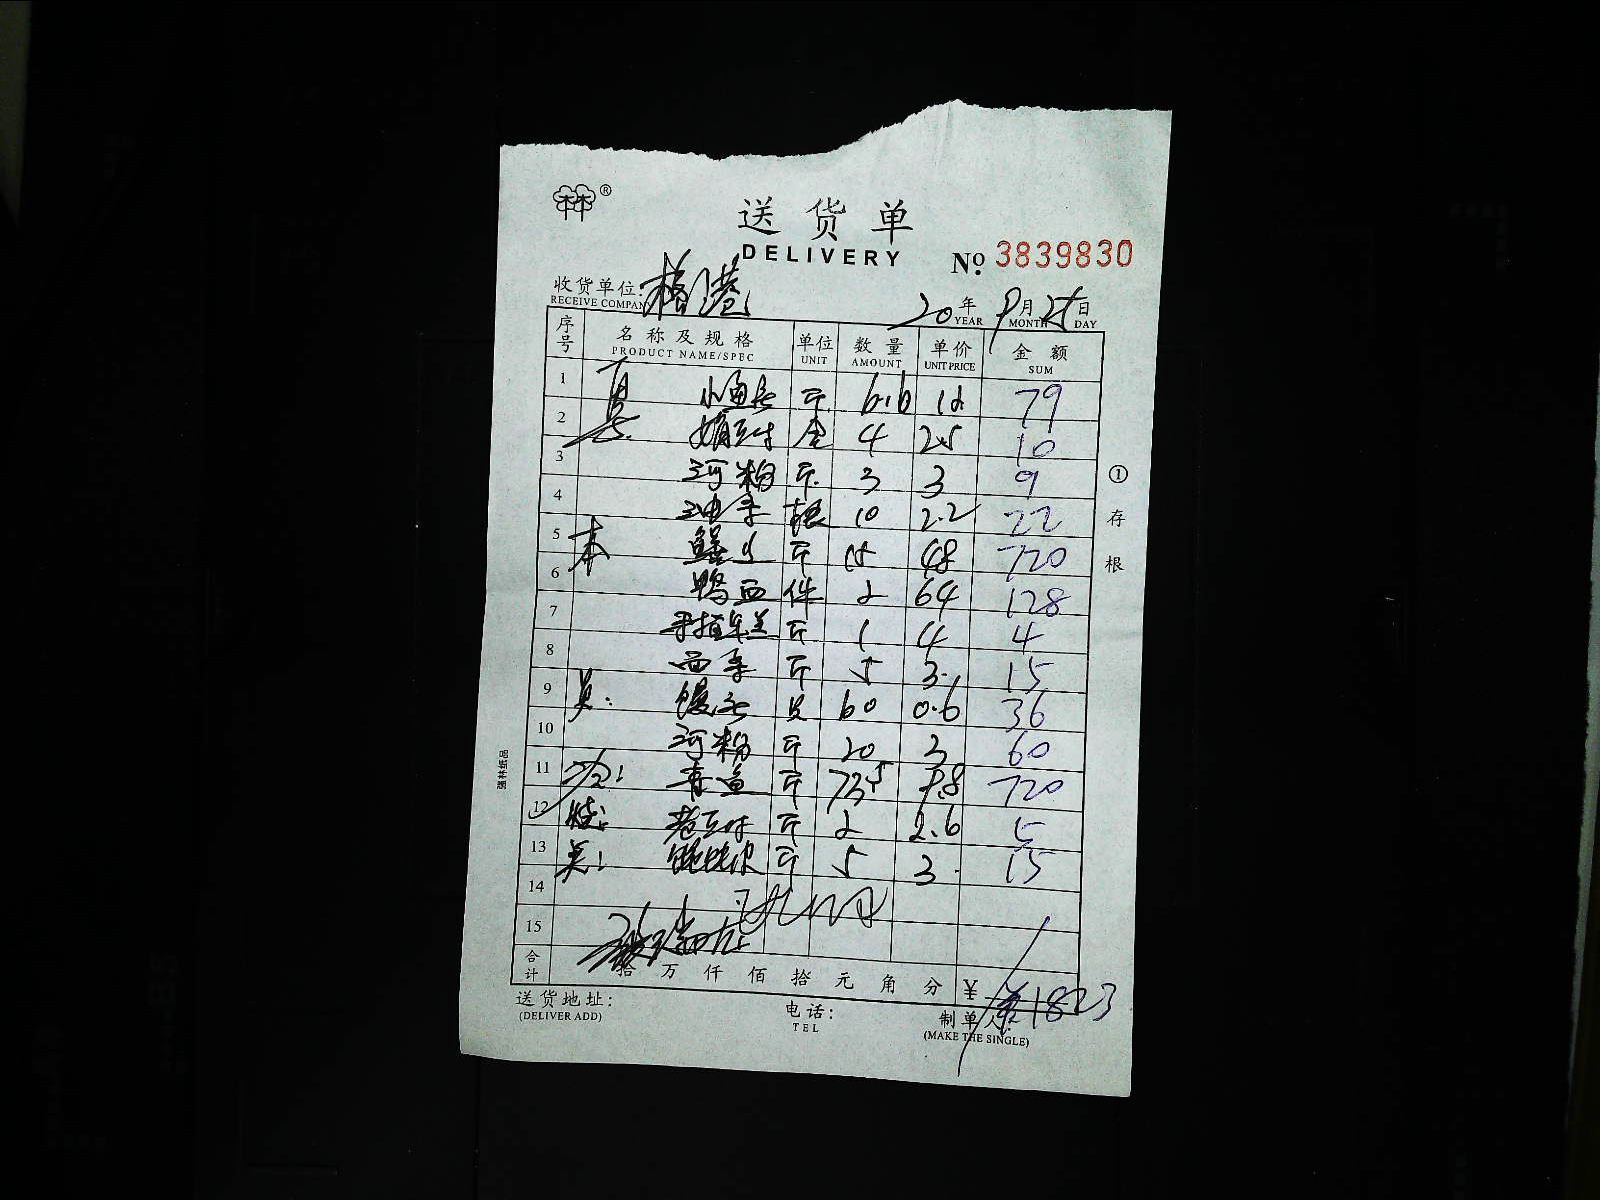 ®
送货单
DELIVERY
№ 3839830
收货单位:
RECEIVE COMPANY
20 年 9 月 25 日
YEAR MONTH DAY
序号 名称及规格 单位 数量 单价 金额
PRODUCT NAME/SPEC UNIT AMOUNT UNIT PRICE SUM
1 斤 6.6 12 79
2 4 2.5 10
3 河粉 斤 3 3 9
4 油条 根 10 2.2 22
5 本 斤 15 48 720
6 鸭血 件 2 64 128
7 斤 1 4 4
8 斤 5 3 15
9 馒头 只 60 0.6 36
10 河粉 斤 20 3 60
11 青鱼 斤 73.5 9.8 720
12 老豆付 斤 2 2.6 5
13 斤 5 3 15
14
15
合计 拾万仟佰拾元角分 ¥ 1823
送货地址:
(DELIVER ADD)
电话:
TEL
制单人:
(MAKE THE SINGLE)
①存根
强林纸品